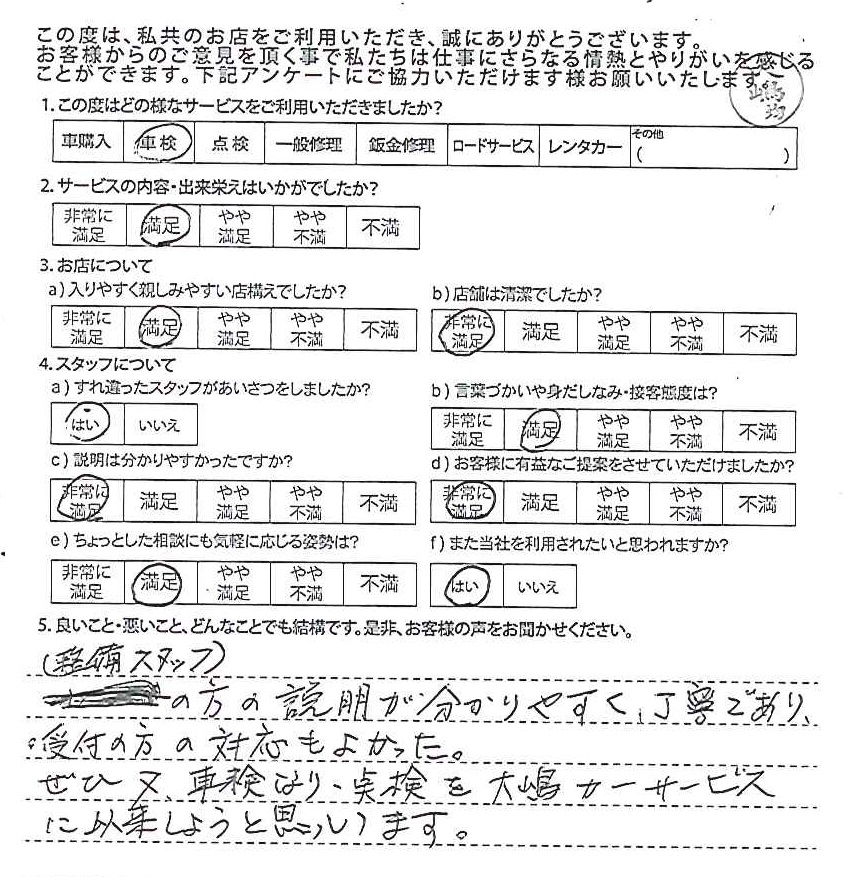 この度は、私共のお店をご利用いただき、誠にありがとうございます。
お客様からのご意見を頂く事で私たちは仕事にさらなる情熱とやりがいを感じる
ことができます。下記アンケートにご協力いただけます様お願いいたします。
大嶋均
1.この度はどの様なサービスをご利用いただきましたか?
車購入 車検 点検 一般修理 鈑金修理 ロードサービス レンタカー その他( )
2.サービスの内容・出来栄えはいかがでしたか?
非常に満足 満足 やや満足 やや不満 不満
3.お店について
a)入りやすく親しみやすい店構えでしたか? b)店舗は清潔でしたか?
非常に満足 満足 やや満足 やや不満 不満 非常に満足 満足 やや満足 やや不満 不満
4.スタッフについて
a)すれ違ったスタッフがあいさつをしましたか? b)言葉づかいや身だしなみ・接客態度は?
はい いいえ 非常に満足 満足 やや満足 やや不満 不満
c)説明は分かりやすかったですか? d)お客様に有益なご提案をさせていただけましたか?
非常に満足 満足 やや満足 やや不満 不満 非常に満足 満足 やや満足 やや不満 不満
e)ちょっとした相談にも気軽に応じる姿勢は? f)また当社を利用されたいと思われますか?
非常に満足 満足 やや満足 やや不満 不満 はい いいえ
5.良いこと・悪いこと、どんなことでも結構です。是非、お客様の声をお聞かせください。
(整備スタッフ)
の方の説明が分かりやすく、丁寧であり、
受付の方の対応もよかった。
ぜひ又、車検なり・点検を大嶋カーサービス
に以来しようと思います。